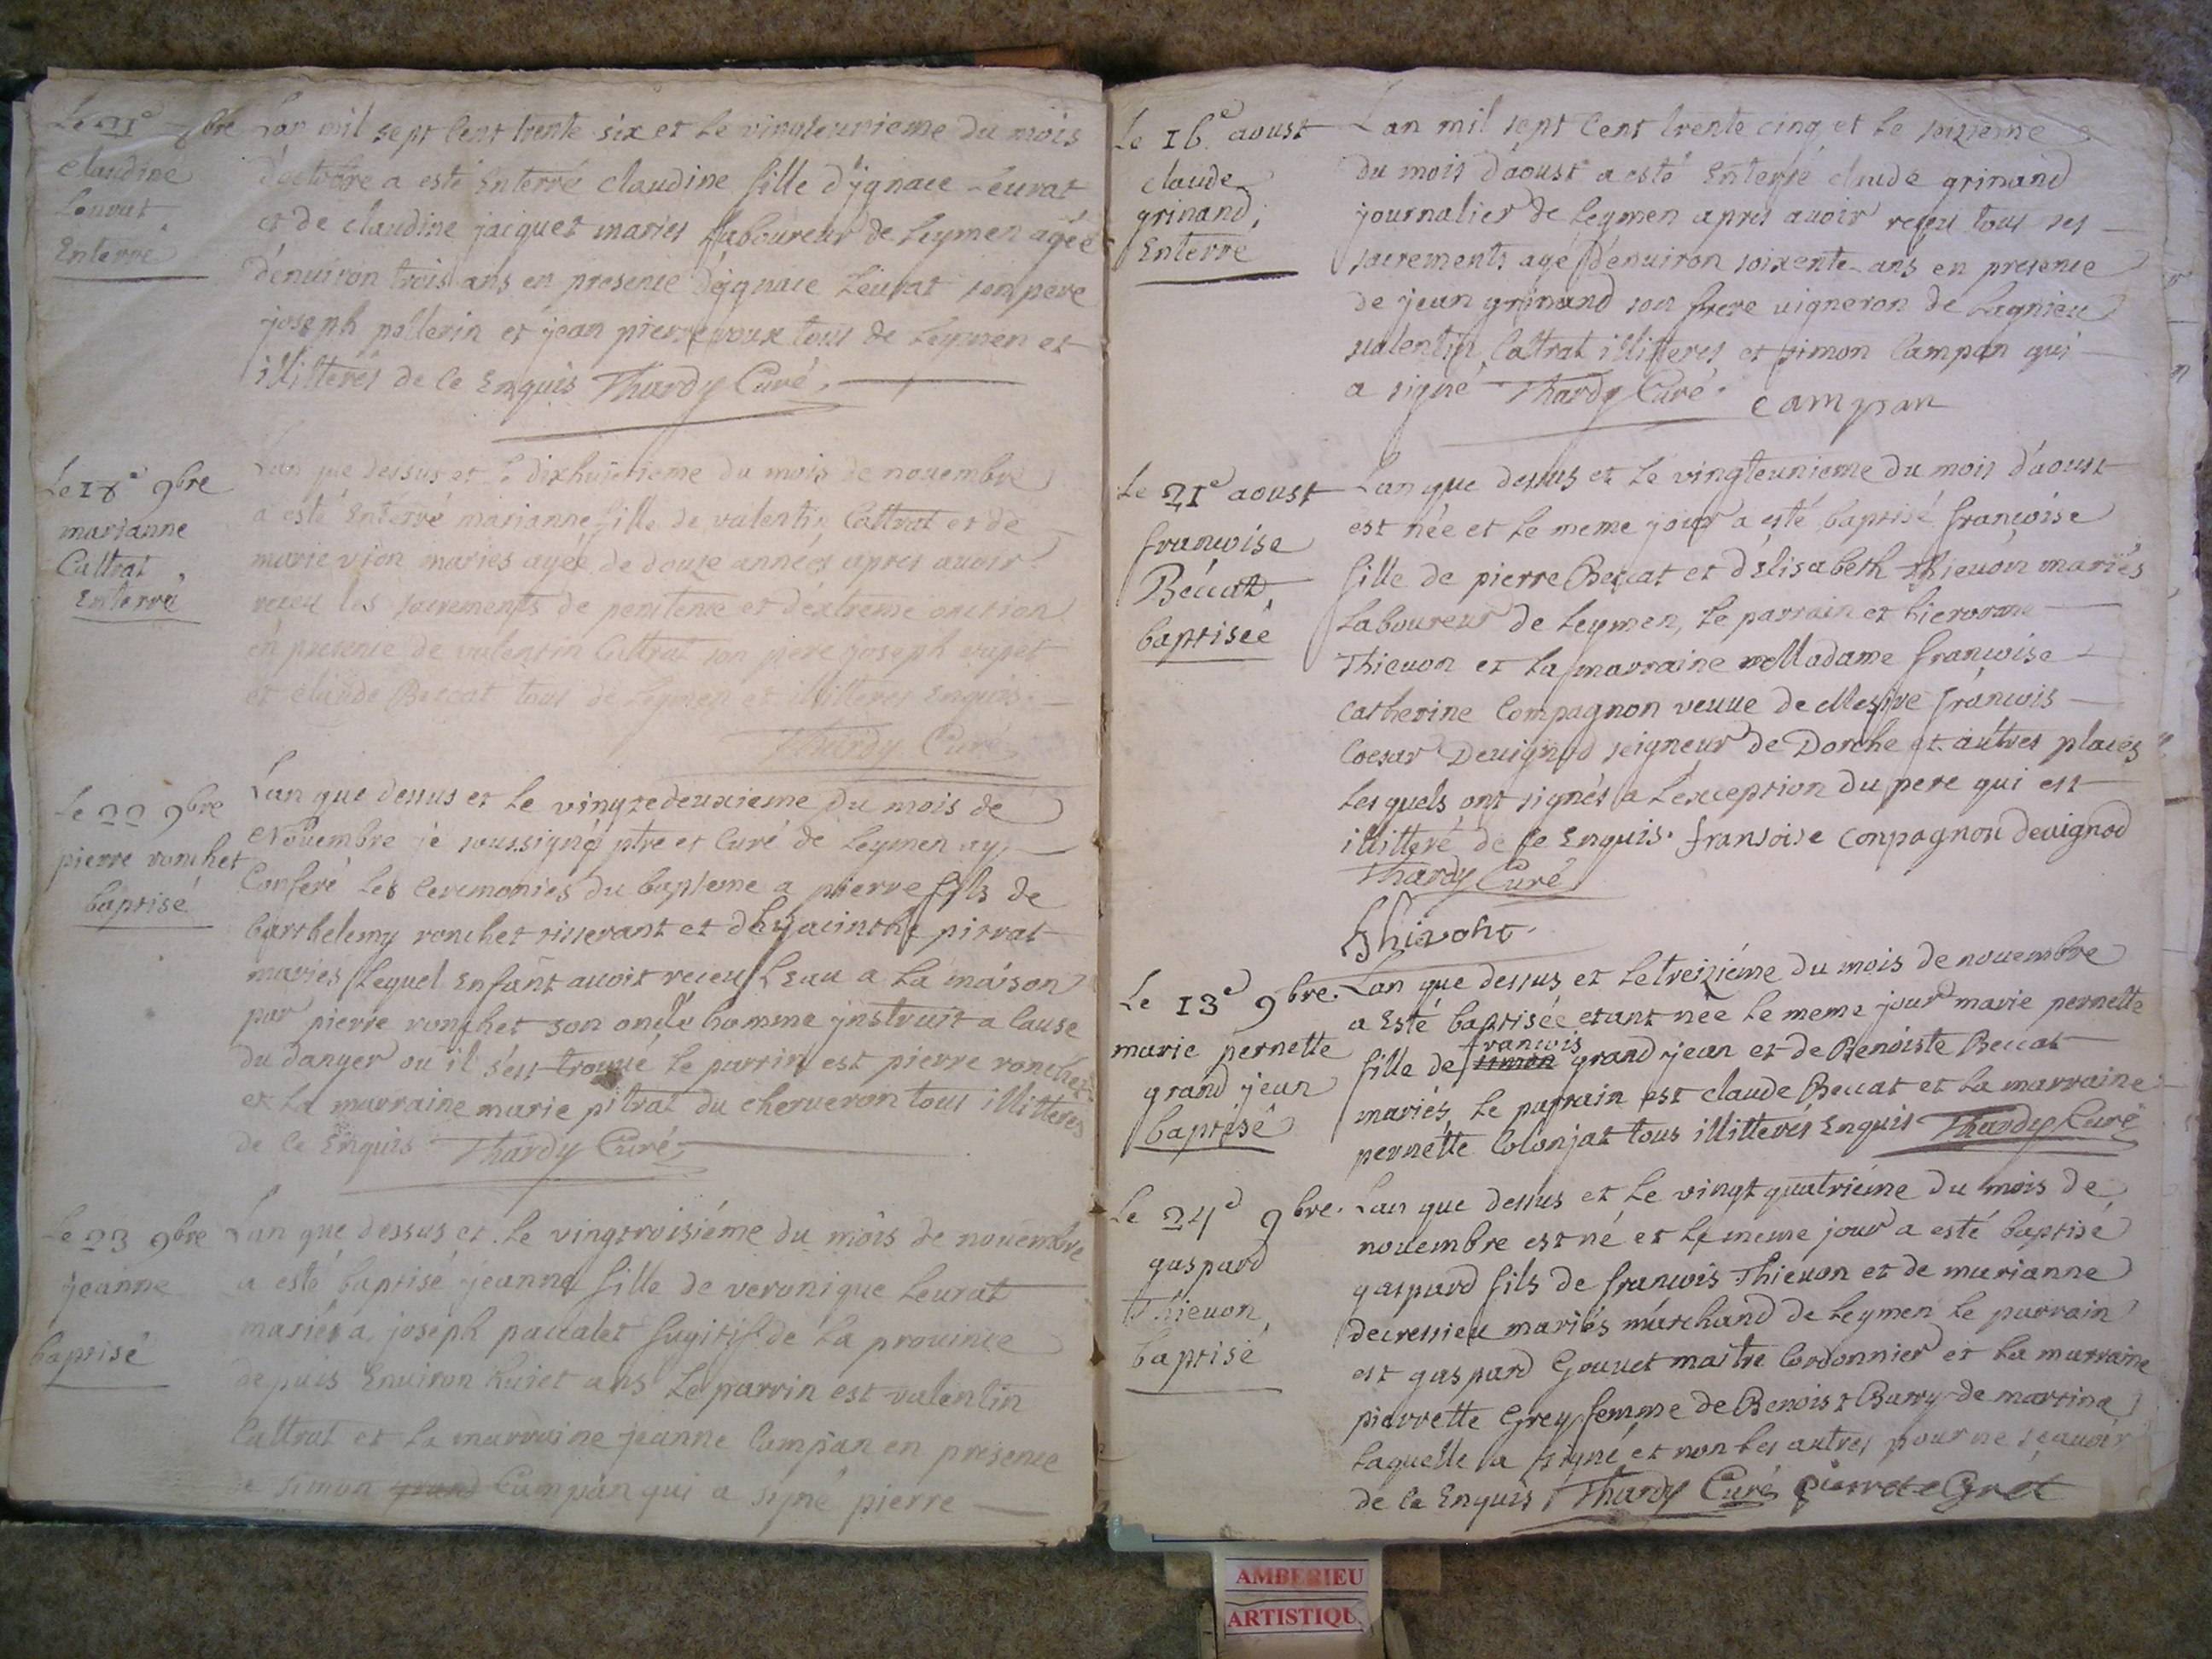 Le 21e 8bre
claudine
Leurat
Enterré
L'an mil sept Cent trente six et le vingteunieme du mois
d'octobre a esté Enterré claudine fille d'ygnace Leurat
et de claudine jacquet mariés Laboureur de Leymen agée
d'enuiron trois ans en presence d'ygnace Leurat son pere
joseph pellerin et jean pierre roux tous de Leymen et
illitterés de ce Enquis Thardy Curé.
Le 18e 9bre
marianne
Cattrat
Enterré
L'an que dessus et le dixhuictieme du mois de nouembre
a esté Enterré marianne fille de valentin Cattrat et de
marie vion mariés agée de douze années apres auoir
receu les sacrements de penitence et d'extreme onction
en presence de valentin Cattrat son pere joseph
et claude Beccat tous de Leymen et illitteres Enquis.
Thardy Curé
Le 22 9bre
pierre ronchet
baptisé
L'an que dessus et le vingtedeuxieme du mois de
Nouembre je soussigné ptre et Curé de Leymen ay
Conferé les Ceremonies du bapteme a pierre fils de
barthelemy ronchet tisserant et d'hyacinthe pitrat
mariés Lequel Enfant auoit receu L'Eau a la maison
par pierre ronchet son oncle homme ynstruit a Cause
du danger ou il s'est trouué le parrin est pierre ronchet
et la marraine marie pitrat du cherueron tous illitteres
de ce Enquis Thardy Curé
Le 23 9bre
jeanne
baptisé
L'an que dessus et le vingtroisiéme du mois de nouembre
a esté baptisé jeanne fille de veronique Leurat
mariés a joseph paccalet fugitif de la prouince
depuis Enuiron huict ans Le parrin est valentin
Cattrat et la marraine jeanne Campan en presence
de simon grand Campan qui a signé pierre
Le 16e aoust
claude
grinand
Enterré
L'an mil sept Cent trente cinq et le seizieme
du mois d'aoust a esté Enterré claude grinand
journalier de Leymen apres auoir reçeu tous ses
sacrements agé d'enuiron soixente ans en presence
de jean grinand son frere vigneron de Lagnieu
valentin Cattrat illitteres et simon Campan qui
a signé Thardy Curé. campan
Le 21e aoust
françoise
Béccat
baptisée
L'an que dessus et le vingteunieme du mois d'aoust
est née et le meme jour a esté baptisé françoise
fille de pierre Beccat et d'Elisabeth Thieuon mariés
Laboureur de Leymen, le parrain et hierorme
Thieuon et la marraine Madame françoise
catherine Compagnon veuue de Messire françois
Coesar Deuignod seigneur de Dorche et autres places
Lesquels ont signés a L'exception du pere qui est
illitteré de ce Enquis. fransoise conpagnon deuignod
Thardy Curé
Le 13e 9bre.
marie pernette
grand jean
baptisé
L'an que dessus et le treiziéme du mois de nouembre
a Esté baptisée etant née le meme jour marie pernette
francois
fille de simon grand jean et de Benoiste Beccat
mariés, Le parrain est claude Beccat et la marraine
pernette Colonjat tous illitterés Enquis Thardy Curé
Le 24e 9bre.
gaspard
Thieuon,
baptisé
L'an que dessus et le vingt quatriéme du mois de
nouembre est né et le meme jour a esté baptisé
gaspard fils de francois Thieuon et de marianne
decressieu mariés marchand de Leymen le parrain
est gaspard Gouuet maitre Cordonnier et la marraine
pierrette Grey femme de Benoist Barry de martina
Laquelle a signé et non les autres pour ne sçauoir
de ce Enquis, Thardy Curé pierrete Gret
AMBERIEU
ARTISTIQU